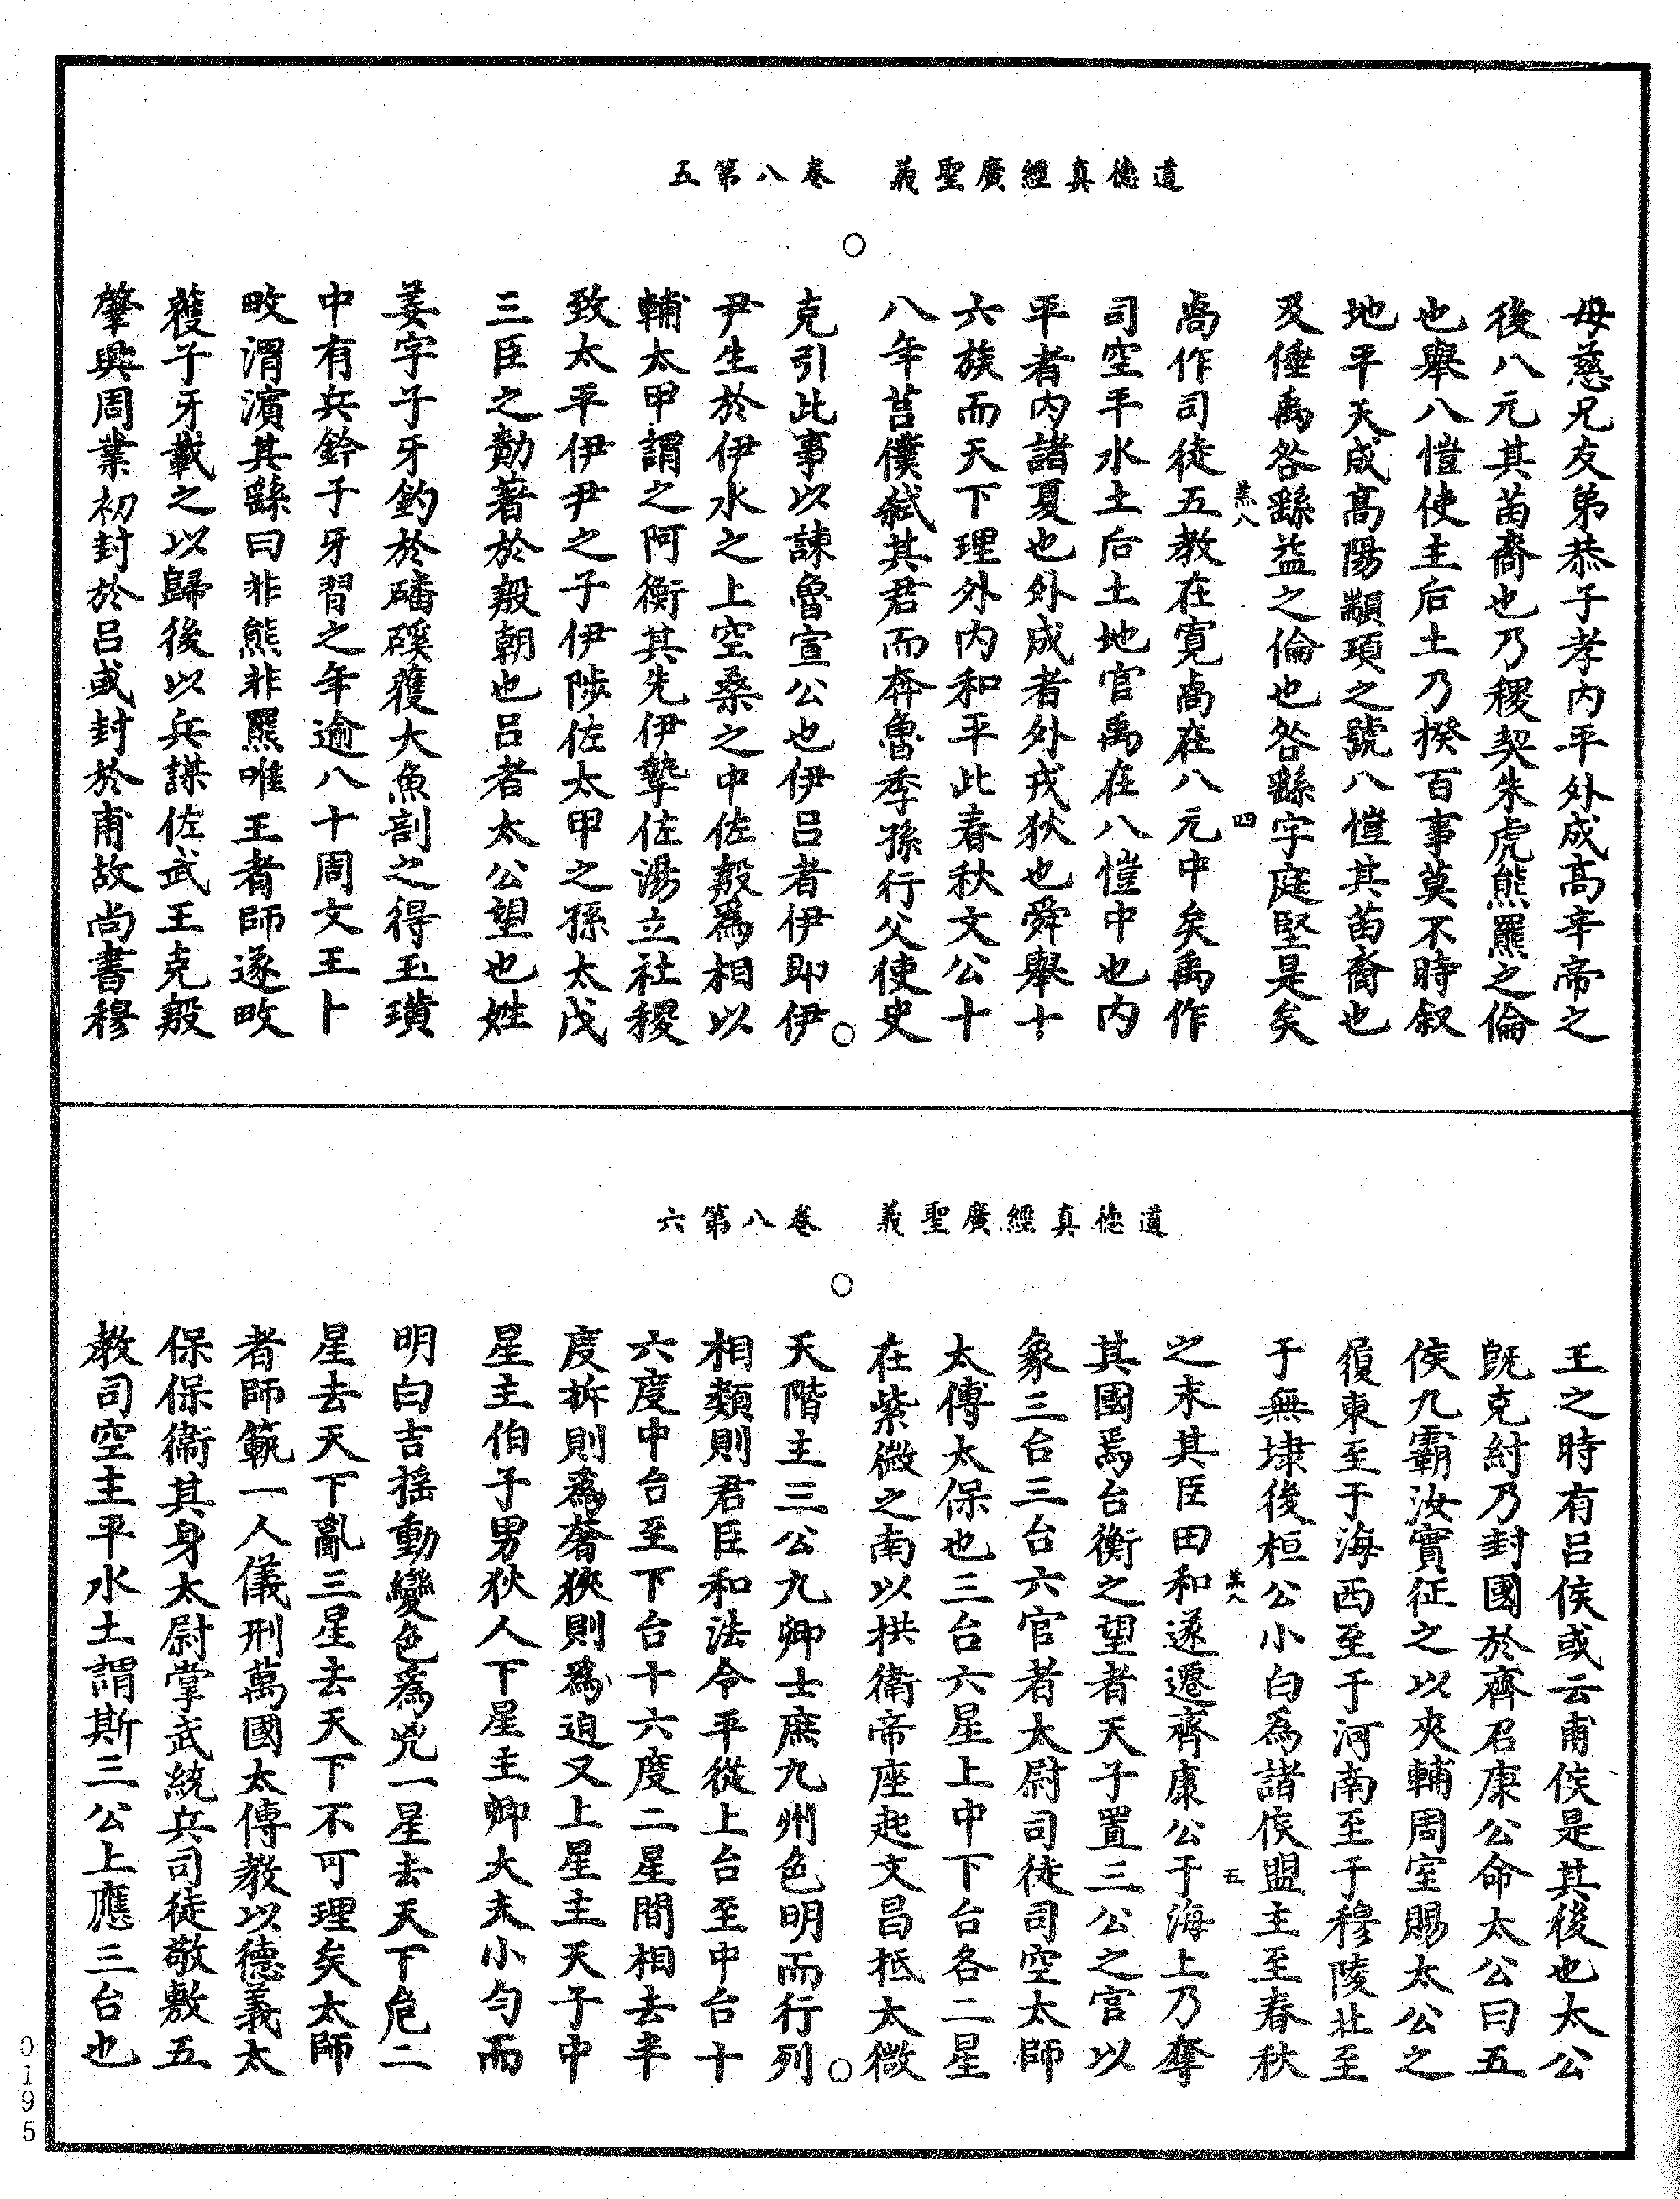 道德真經廣聖義　卷八第五
母慈兄友弟恭子孝內平外成高辛帝之
後八元其苗裔也乃稷契朱虎熊羆之倫
也舉八愷使主后土乃揆百事莫不時敘
地平天成高陽顓頊之號八愷其苗裔也
及倕禹咎繇益之倫也咎繇字庭堅是矣
羔八　四
卨作司徒五教在寬卨在八元中矣禹作
司空平水土后土地官禹在八愷中也內
平者內諸夏也外成者外戎狄也舜舉十
六族而天下理外內和平此春秋文公十
八年莒僕弒其君而奔魯季孫行父使史
克引此事以諫魯宣公也伊呂者伊即伊
尹生於伊水之上空桑之中佐殷為相以
輔太甲謂之阿衡其先伊摯佐湯立社稷
致太平伊尹之子伊陟佐太甲之孫太戊
三臣之勳著於殷朝也呂者太公望也姓
姜字子牙釣於磻磎獲大魚剖之得玉璜
中有兵鈐子牙習之年逾八十周文王卜
畋渭濱其繇曰非熊非羆唯王者師遂畋
獲子牙載之以歸後以兵謀佐武王克殷
肇興周業初封於呂或封於甫故尚書穆
道德真經廣聖義　卷八第六
王之時有呂侯或云甫侯是其後也太公
既克紂乃封國於齊召康公命太公曰五
侯九霸汝實征之以夾輔周室賜太公之
履東至于海西至于河南至于穆陵北至
于無棣後桓公小白為諸侯盟主至春秋
羔八　五
之末其臣田和遂遷齊康公于海上乃奪
其國焉台衡之望者天子置三公之官以
象三台三台六官者太尉司徒司空太師
太傅太保也三台六星上中下台各二星
在紫微之南以拱衛帝座起文昌抵太微
天階主三公九卿士庶九州色明而行列
相類則君臣和法令平從上台至中台十
六度中台至下台十六度二星間相去半
度拆則為奢狹則為迫又上星主天子中
星主伯子男狄人下星主卿大夫小勻而
明白吉搖動變色為兇一星去天下危二
星去天下亂三星去天下不可理矣太師
者師範一人儀刑萬國太傅教以德義太
保保衞其身太尉掌武統兵司徒敬敷五
教司空主平水土謂斯三公上應三台也
0195